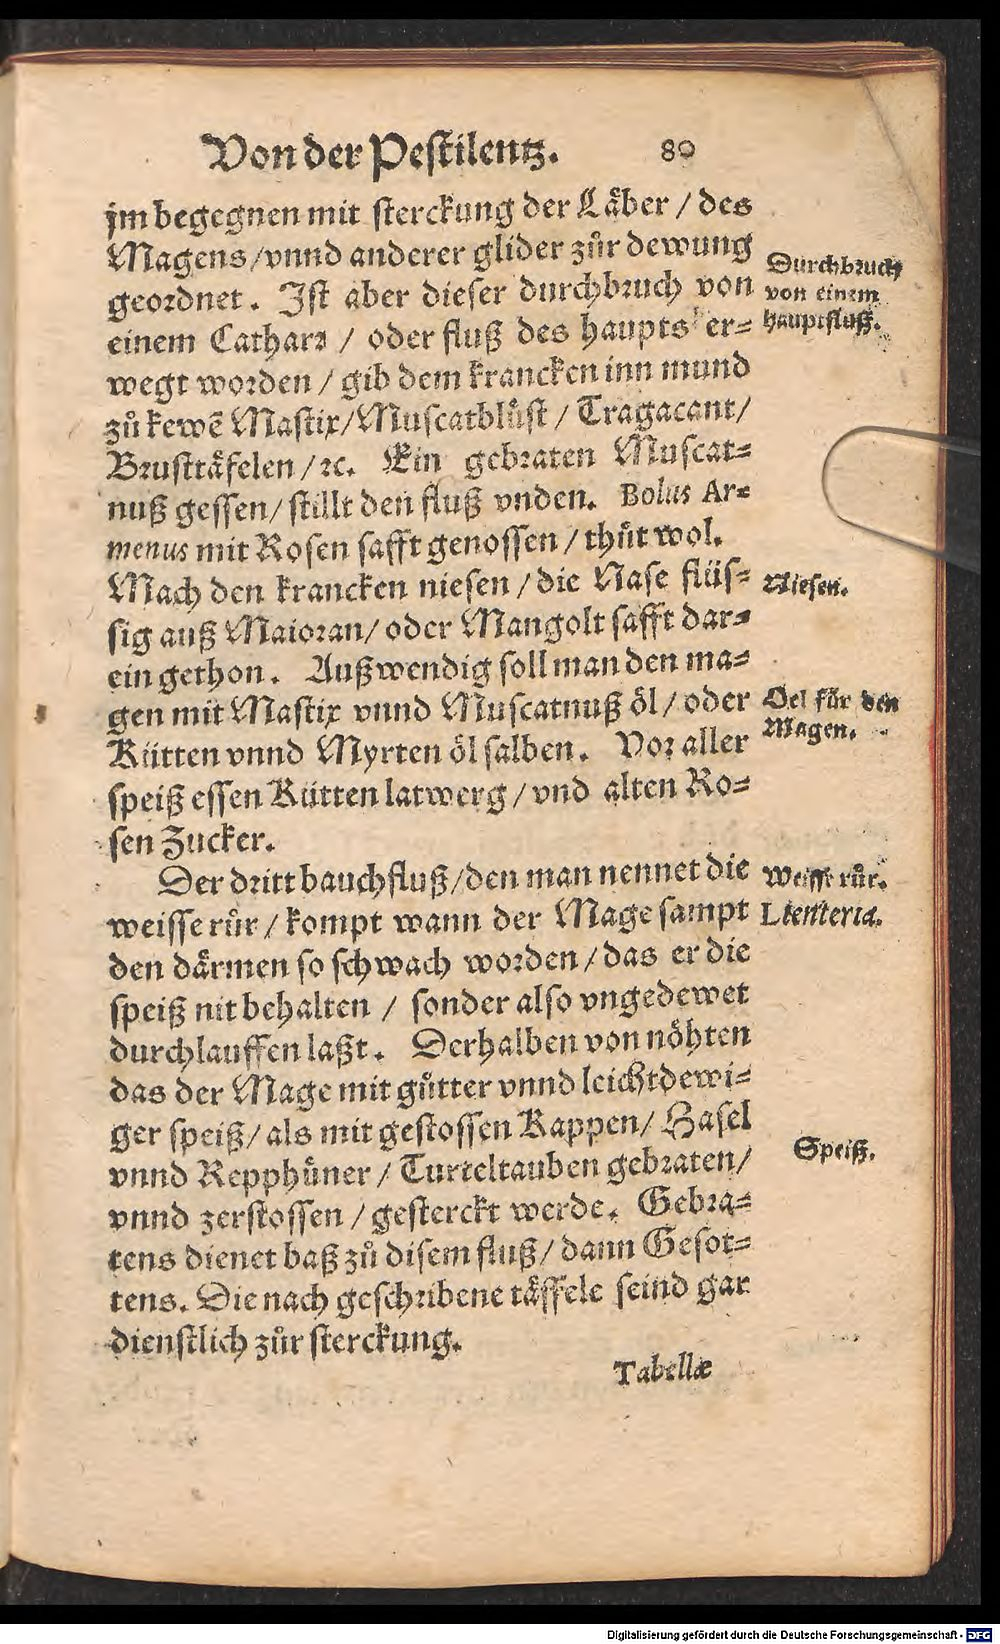 Von der Pestilentz. 80
jm begegnen mit sterckung der Läber / des
Magens / vnnd anderer glider zůr dewung
geordnet. Ist aber dieser durchbruch von
einem Catharr / oder fluß des haupts er=
wegt worden / gib dem krancken inn mund
zů kewē Mastix / Muscatblůst / Tragacant /
Brusttäfelen / ꝛc. Ein gebraten Muscat=
nuß gessen / stillt den fluß vnden. Bolus Ar=
menus mit Rosen safft genossen / thůt wol.
Mach den krancken niesen / die Nase flüs=
sig auß Maioran / oder Mangolt safft dar=
ein gethon. Außwendig soll man den ma=
gen mit Mastix vnnd Muscatnuß öl / oder
Kütten vnnd Myrten öl salben. Vor aller
speiß essen Kütten latwerg / vnd alten Ro=
sen Zucker.
Durchbruch
von einem
hauptfluß.
Niesen.
Oel für den
Magen.
Der dritt bauchfluß / den man nennet die
weisse růr / kompt wann der Mage sampt
den därmen so schwach worden / das er die
speiß nit behalten / sonder also vngedewet
durchlauffen laßt. Derhalben von nöhten
das der Mage mit gůtter vnnd leichtdewi=
ger speiß / als mit gestossen Kappen / Hasel
vnnd Repphüner / Turteltauben gebraten /
vnnd zerstossen / gesterckt werde. Gebra=
tens dienet baß zů disem fluß / dann Gesot=
tens. Die nach geschribene täffele seind gar
dienstlich zůr sterckung.
Weisse růr.
Lienteria.
Speiß.
Tabellæ
Digitalisierung gefördert durch die Deutsche Forschungsgemeinschaft - DFG